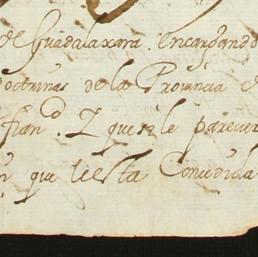 de Guadalaxara. encargando
doctrinas de la Prouincia
fran.co. Y que si le pareuer
que le esta Concedida